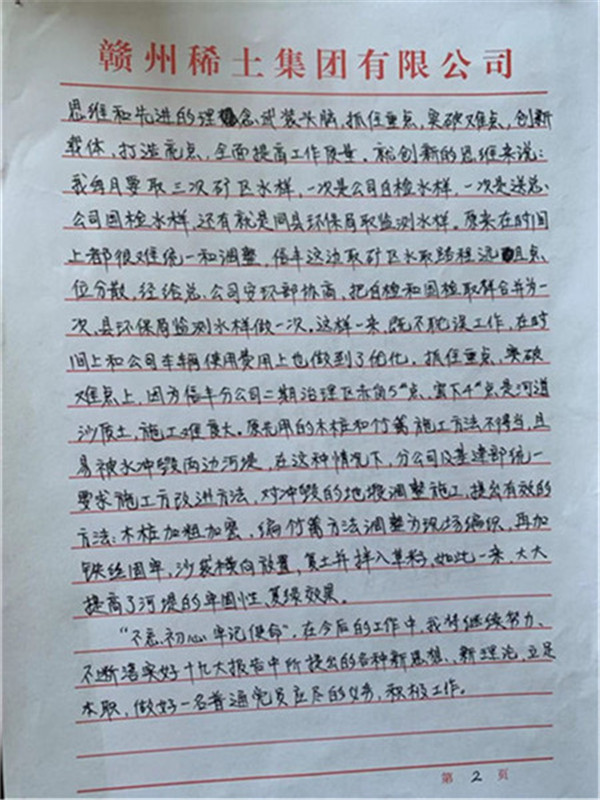 赣州稀土集团有限公司
思维和先进的理念武装头脑,抓住重点,突破难点,创新
载体,打造亮点,全面提高工作质量。就创新的思维来说:
我每月要取三次矿区水样,一次是公司自检水样,一次是送总
公司国检水样,还有就是同县环保局取监测水样。原来在时间
上都很难统一和调整,信丰这边取矿区水取路程远且点
位分散,经给总公司安环部协商,把自检和国检取样合并为一
次,县环保局监测水样做一次,这样一来,既不耽误工作,在时
间上和公司车辆使用费用上也做到了优化。抓住重点,突破
难点上,因为信丰分公司二期治理区赤岗5#点、窑下4#点是河道
沙质土,施工难度大。原先用的木桩和竹篱施工方法不得当,且
易被水冲毁两边河堤,在这种情况下,分公司及基建部统一
要求施工方改进方法,对冲毁的地段调整施工,提出有效的
方法:木桩加粗加密,编竹篱方法调整为现场编织,再加
铁丝固牢,沙袋横向放置,复土并拌入草籽,如此一来,大大
提高了河堤的牢固性、复绿效果。
“不忘初心牢记使命”,在今后的工作中,我将继续努力、
不断落实好十九大报告中所提出的各种新思想、新理论,立足
本职,做好一名普通党员应尽的义务,积极工作。
第 2 页